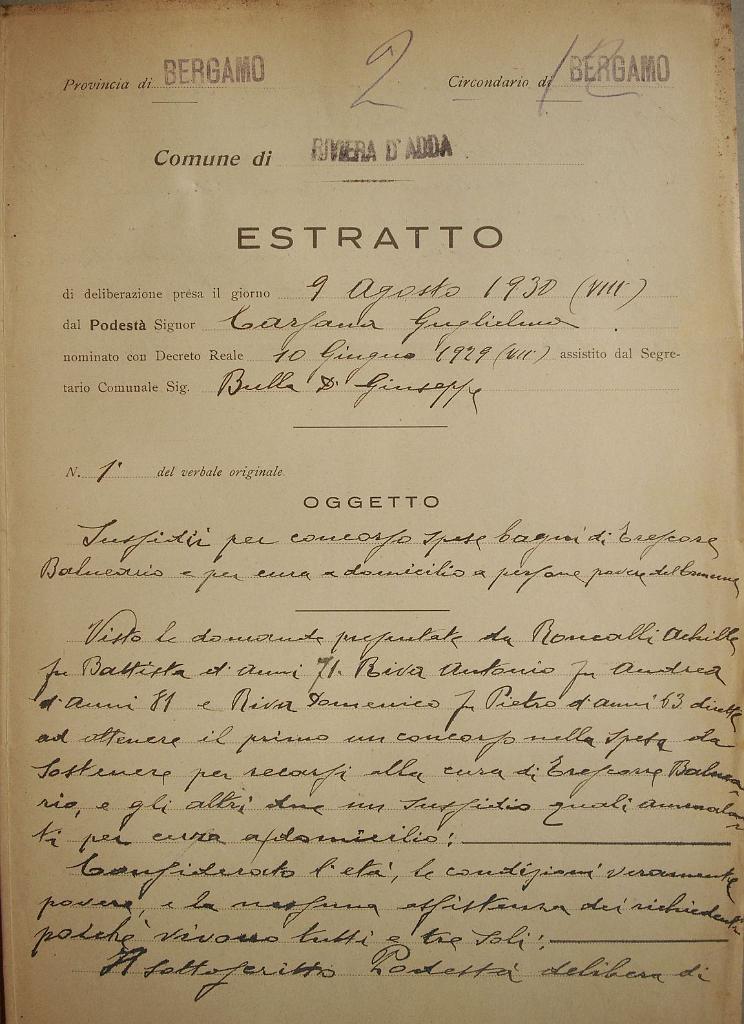 2
12
Provincia di BERGAMO Circondario di BERGAMO
Comune di RIVIERA D'ADDA
ESTRATTO
di deliberazione presa il giorno 9 Agosto 1930 (VIII)
dal Podestà Signor Carsana Guglielmo
nominato con Decreto Reale 10 Giugno 1929 (VII) assistito dal Segre-
tario Comunale Sig. Bulla Dr Giuseppe
N. 1° del verbale originale.
OGGETTO
Sussidii per concorso spese bagni di Trescore
Balneario e per cura a domicilio a persone povere del Comune
Visto le domande presentate da Roncalli Achille
fu Battista d'anni 71. Riva Antonio fu Andrea
d'anni 81 e Riva Domenico fu Pietro d'anni 63 dirette
ad ottenere il primo un concorso nella spesa da
sostenere per recarsi alla cura di Trescorre Balnea-
rio, e gli altri due un sussidio quali ammala-
ti per cura a domicilio;
Considerato l'età, le condizioni veramente
povere, e la nessuna assistenza dei richiedenti
poichè vivono tutti e tre soli;
Il sottoscritto Podestà delibera di